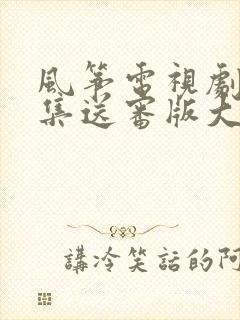 風箏電視劇
集送審版大
講冷笑話的阿